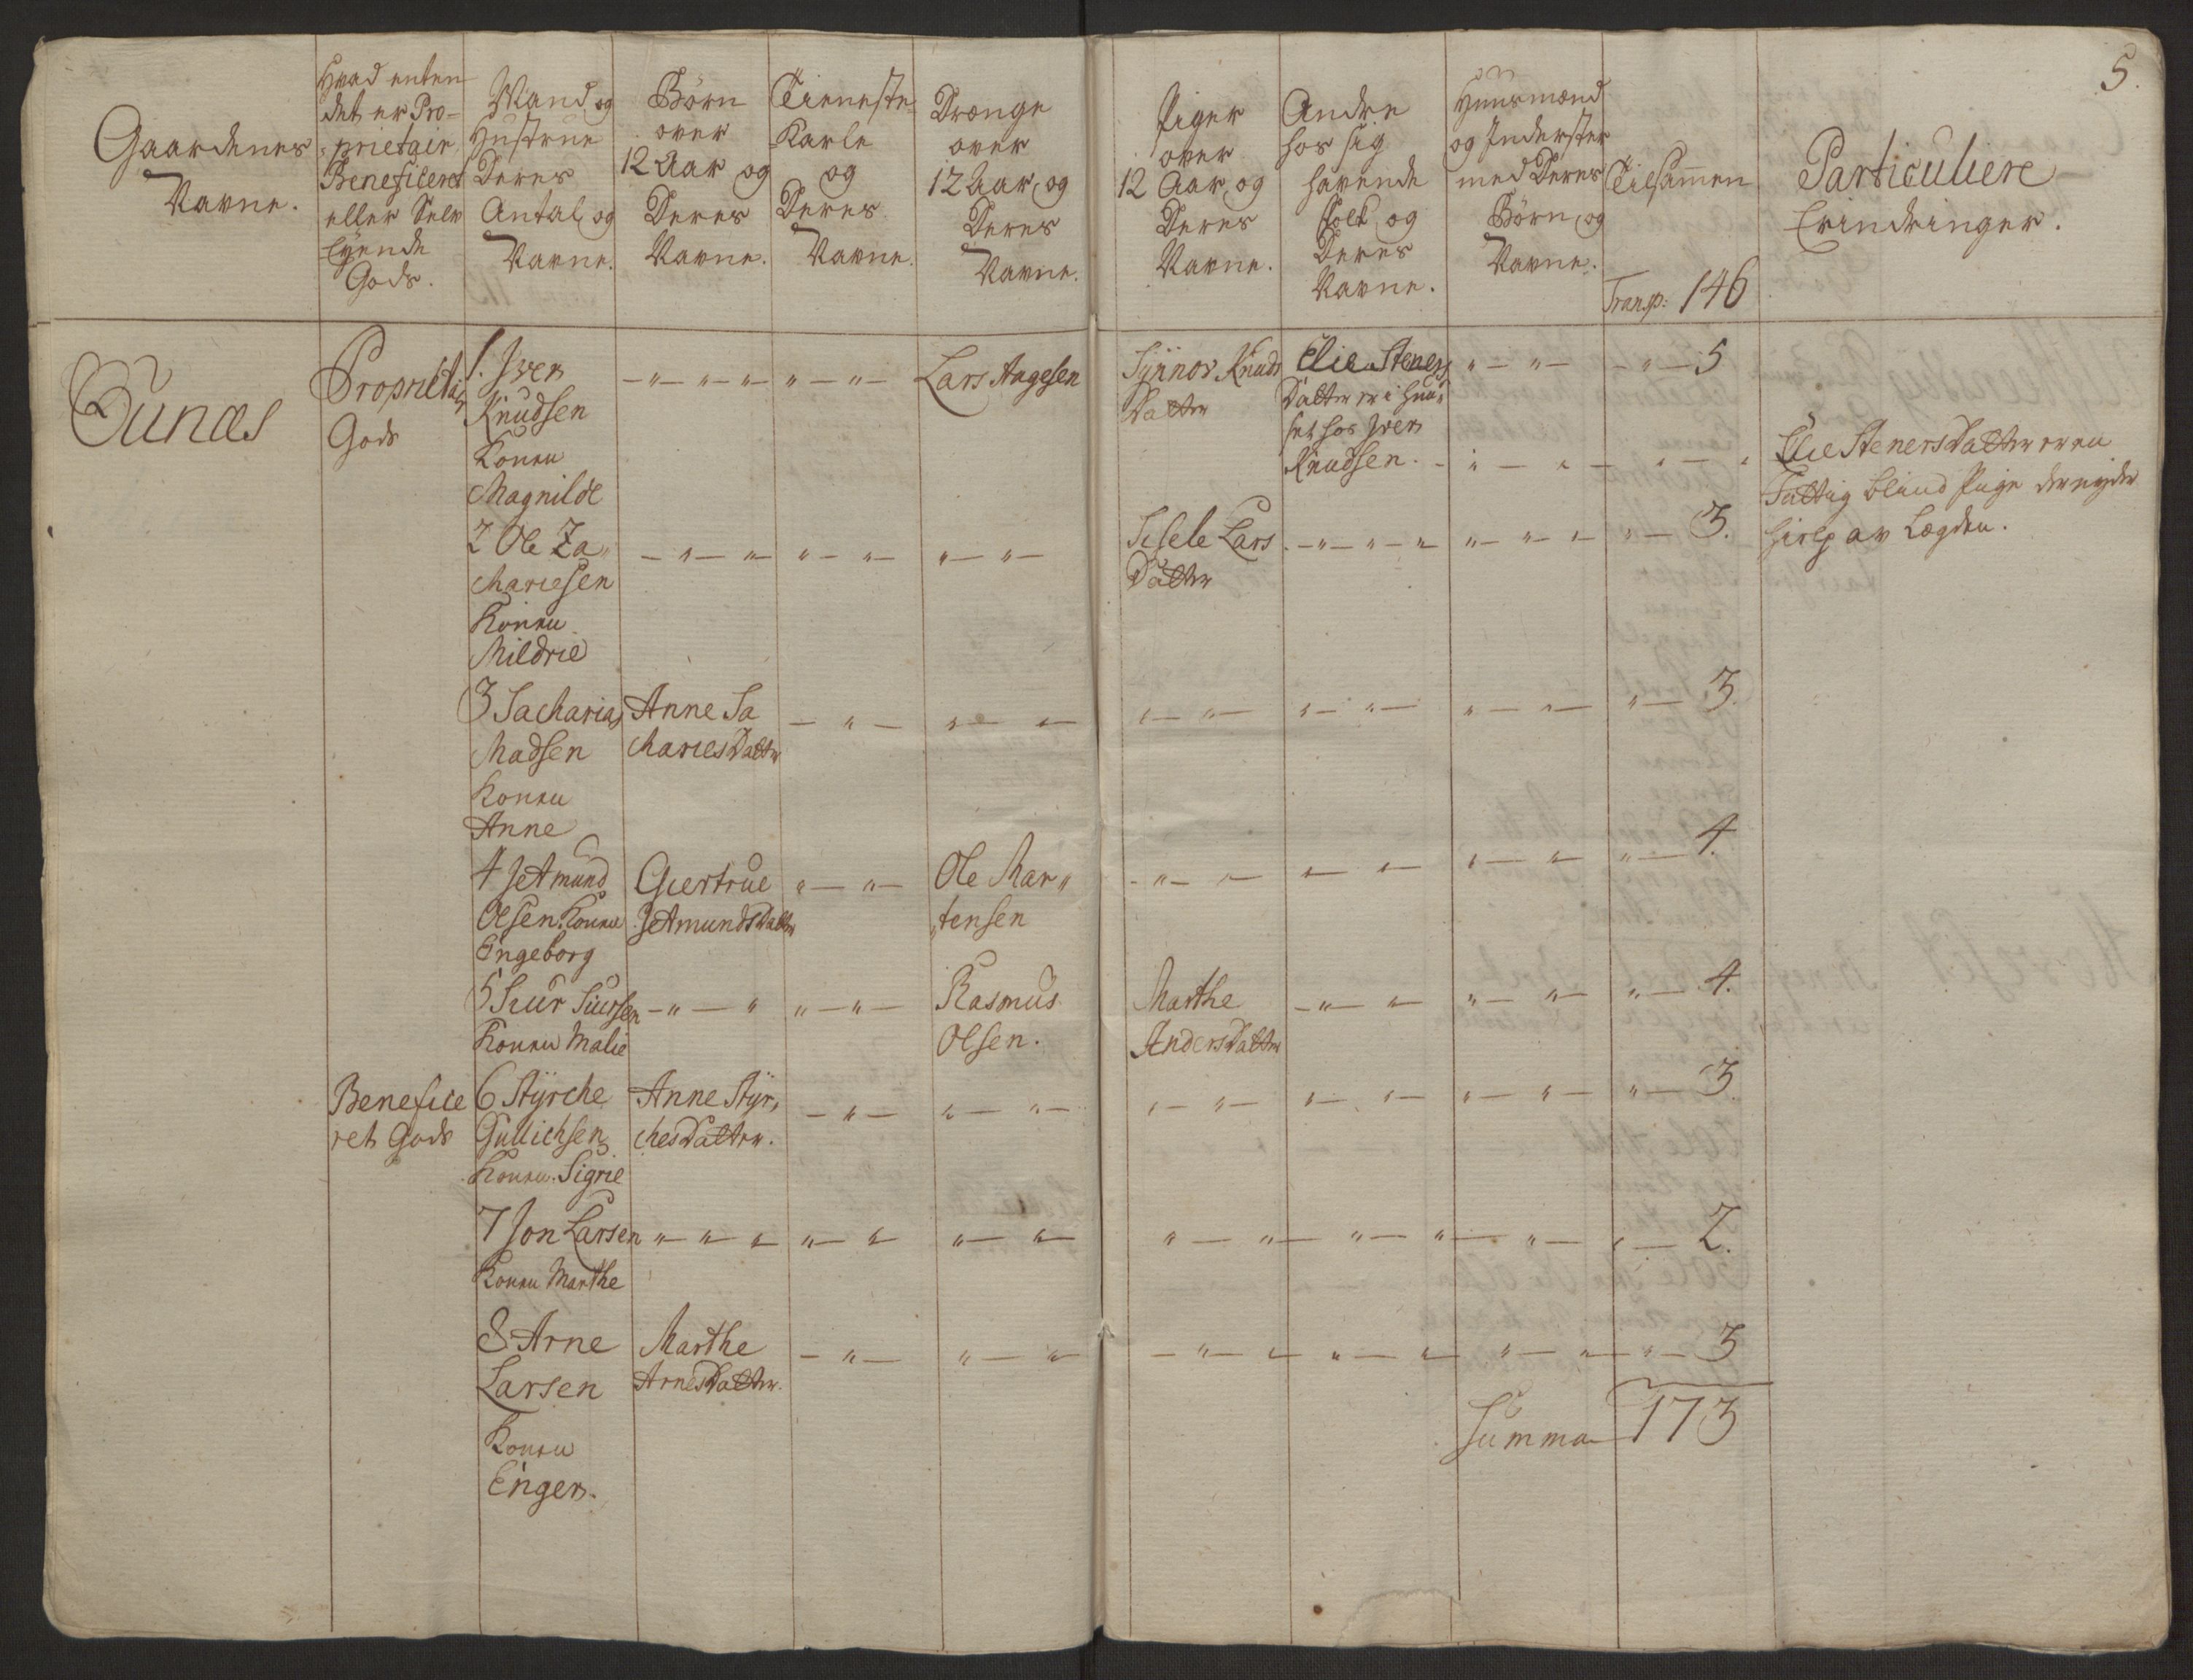 5.
Gaardenes
Navne.
Hvad enten
det er Pro-
prietair
Beneficeret
eller Selv
Eyende
Gods.
Mand og
Hustrue
Deres
Antal og
Navne.
Børn
over
12 Aar og
Deres
Navne.
Tieneste
Karle
og
Deres
Navne.
Drænge
over
12 Aar og
Deres
Navne.
Piger
over
12 Aar og
Deres
Navne.
Andre
hos sig
havende
Folk og
Deres
Navne.
Huusmænd
og Inderster
med Deres
Børn og
Navne.
Tilsamen
Transp: 146
Particuliere
Erindringer.
Sunds
Proprietair
Gods
1. Iver
Knudsen
Konen
Magnilde
Lars Aagesen
Synnov Knuds
Datter
Elie Steners
Datter er i huu
set hos Iver
Knudsen.
5
Elie Steners Datter er en
Fattig blind Pige der nyder
hielp av Lægden.
2 Ole Za„
chariesen
Konen
Mildrie
Sisele Lars
Datter
3.
3 Sacharias
Madsen
Konen
Anne
Anne Sa
charies Datter
3.
4 Jetmund
Olsen. Konen
Engeborg
Giertrue
Jetmunds Datter
Ole Mar„
„tensen
4.
5 Siur Siursen
Konen Malie
Rasmus
Olsen.
Marthe
Anders Datter
4.
Benefice
ret Gods
6 Styrche
Gullichsen
Konen. Sigrie
Anne Styr„
ches Datter.
3.
7 Jon Larsen
Konen Marthe
2.
8 Arne
Larsen
Konen
Enger.
Marthe
Arnes Datter.
3
Summa 173